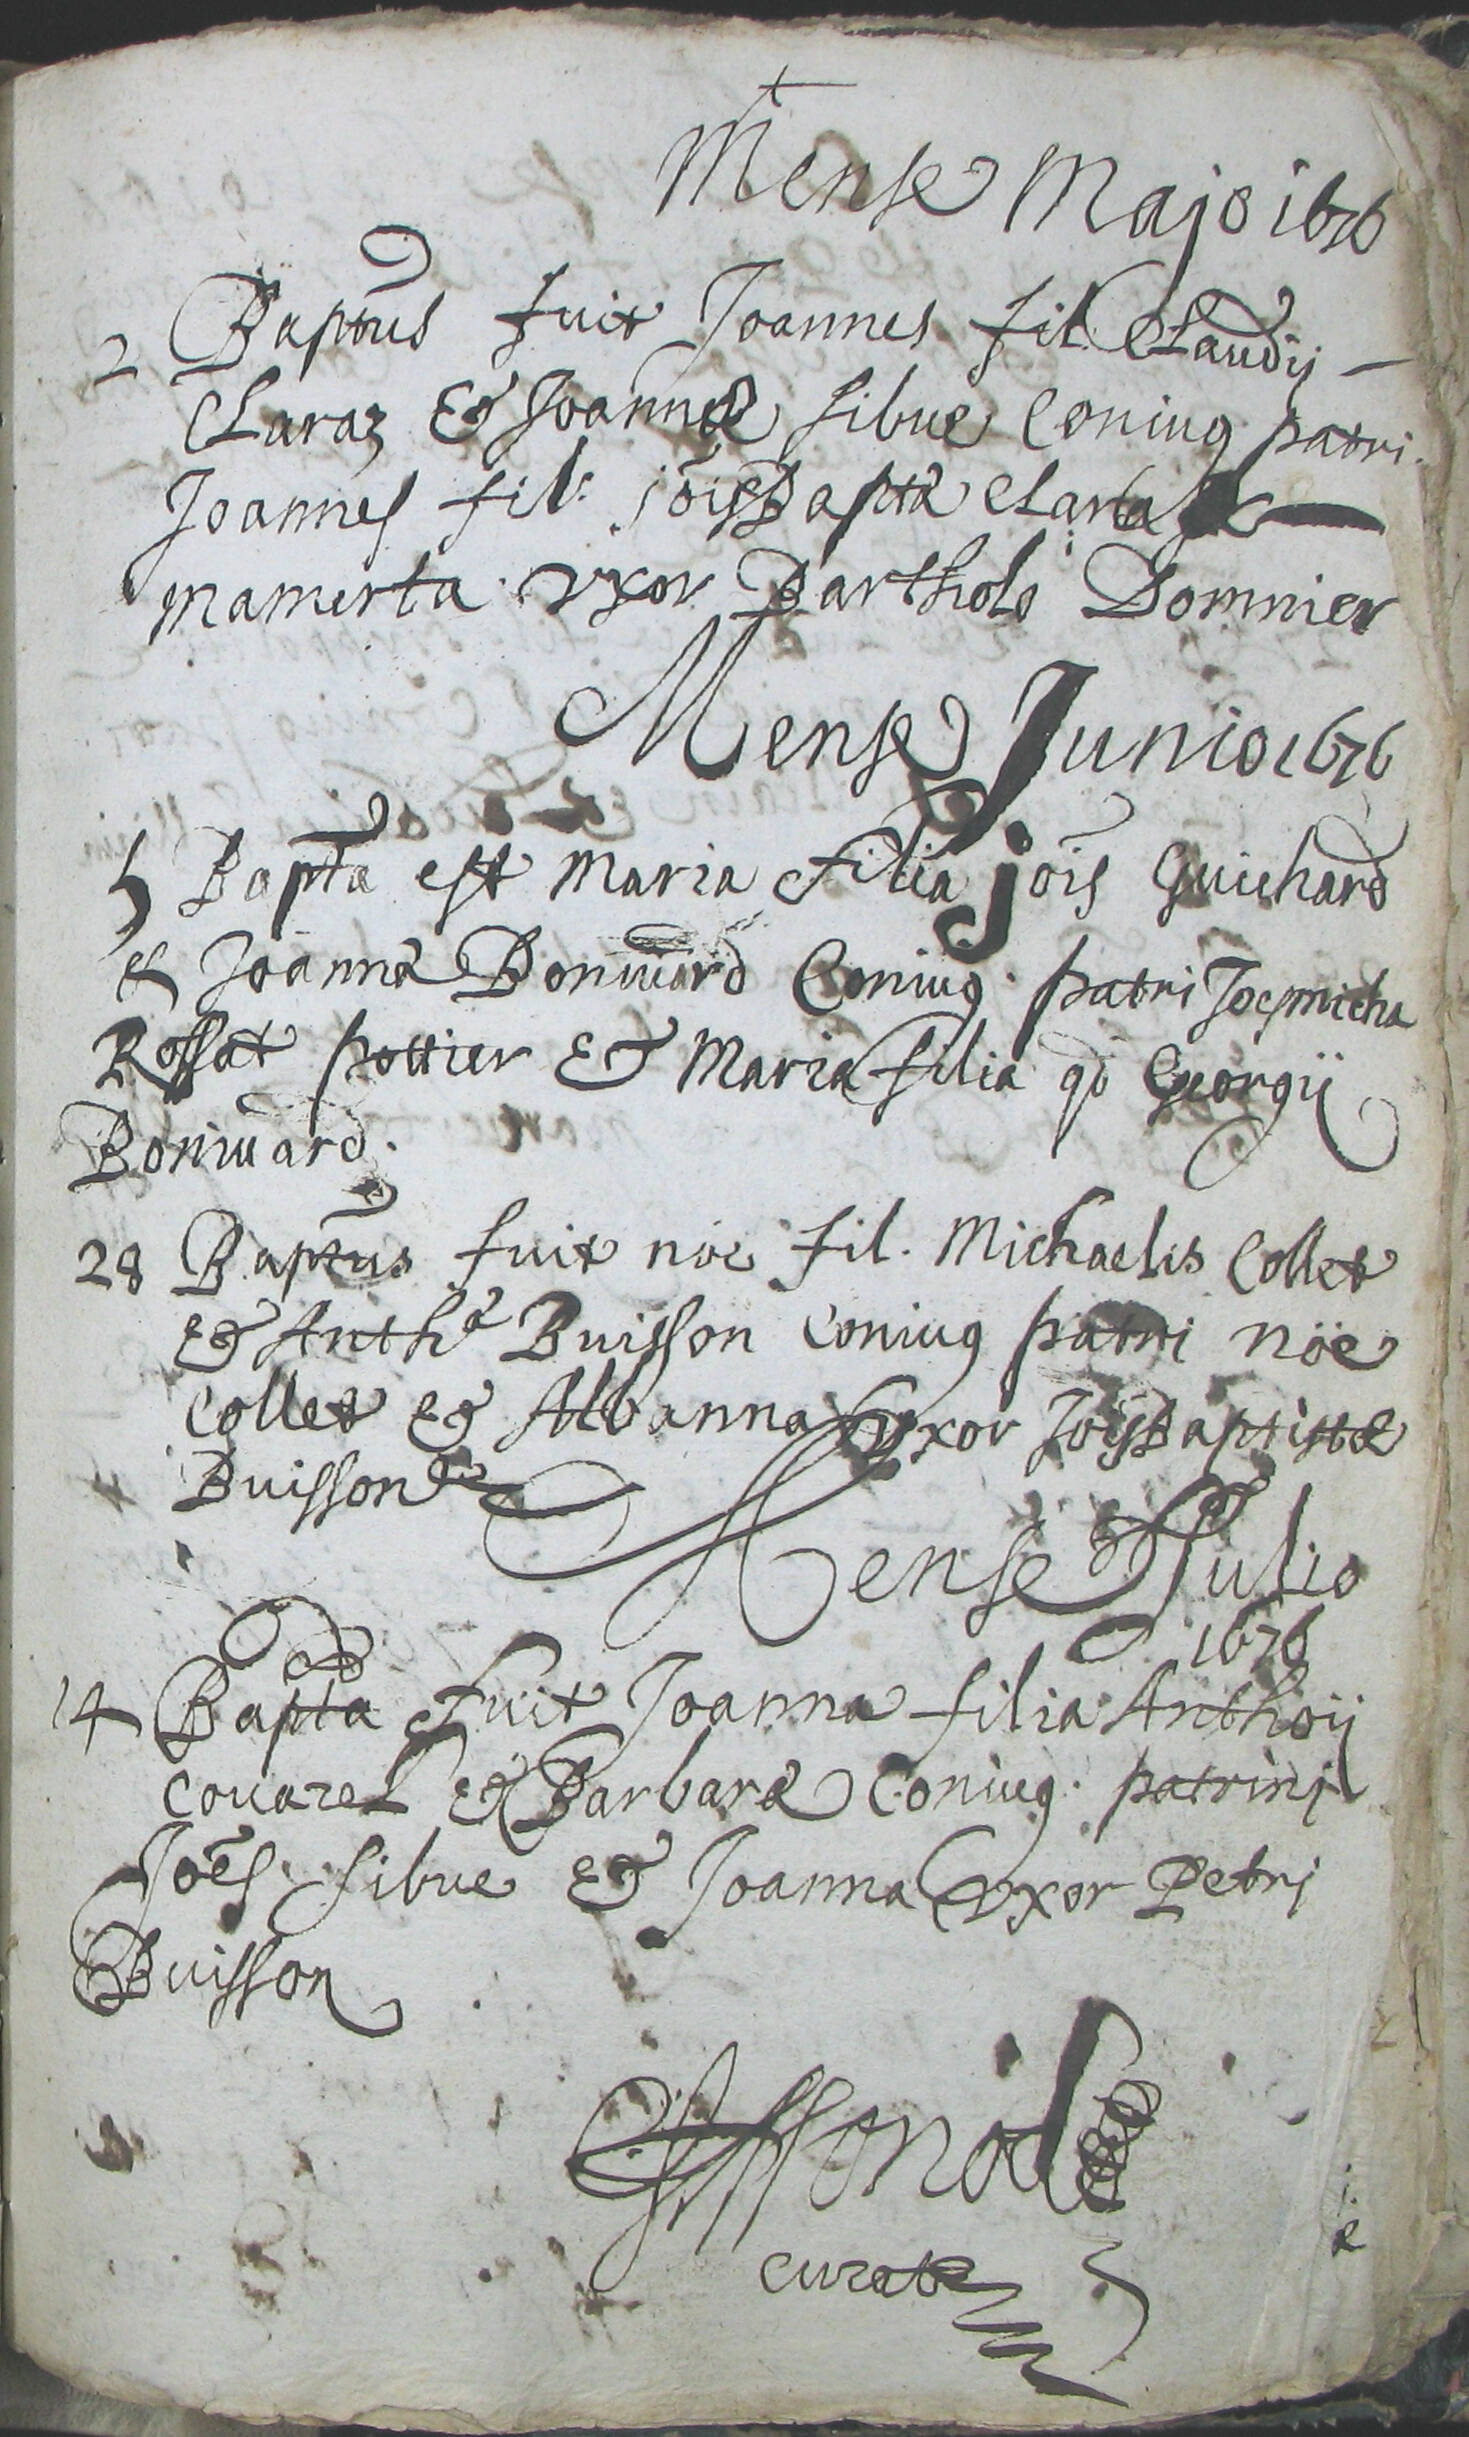 Mense Majo 1676
2 Baptus fuit Joannes fil Claudij
Claraz & Joannæ sibue Coniug patri.
Joannes fil: jōisBaptæ Claraz &
mamerta vxor Bartholo Domnier
Mense Junio 1676
5 Bapta est Maria filia jōis Guichard
& Joannæ Boniuard Coniug patri Joesmicha
Rossat pottier & Maria filia qd Georgij
Boniuard.
28 Baptus fuit nöe fil. Michaelis Collet
& Anthæ Buisson Coniug patri nöe
Collet & Albanna vxor JōisBaptistæ
Buisson
Mense Julio
1676
14 Bapta fuit Joanna filia Anthoij
Couazet & Barbaræ Coniug. patrinj
Joēs sibue & Joanna vxor Petri
Buisson
curatus